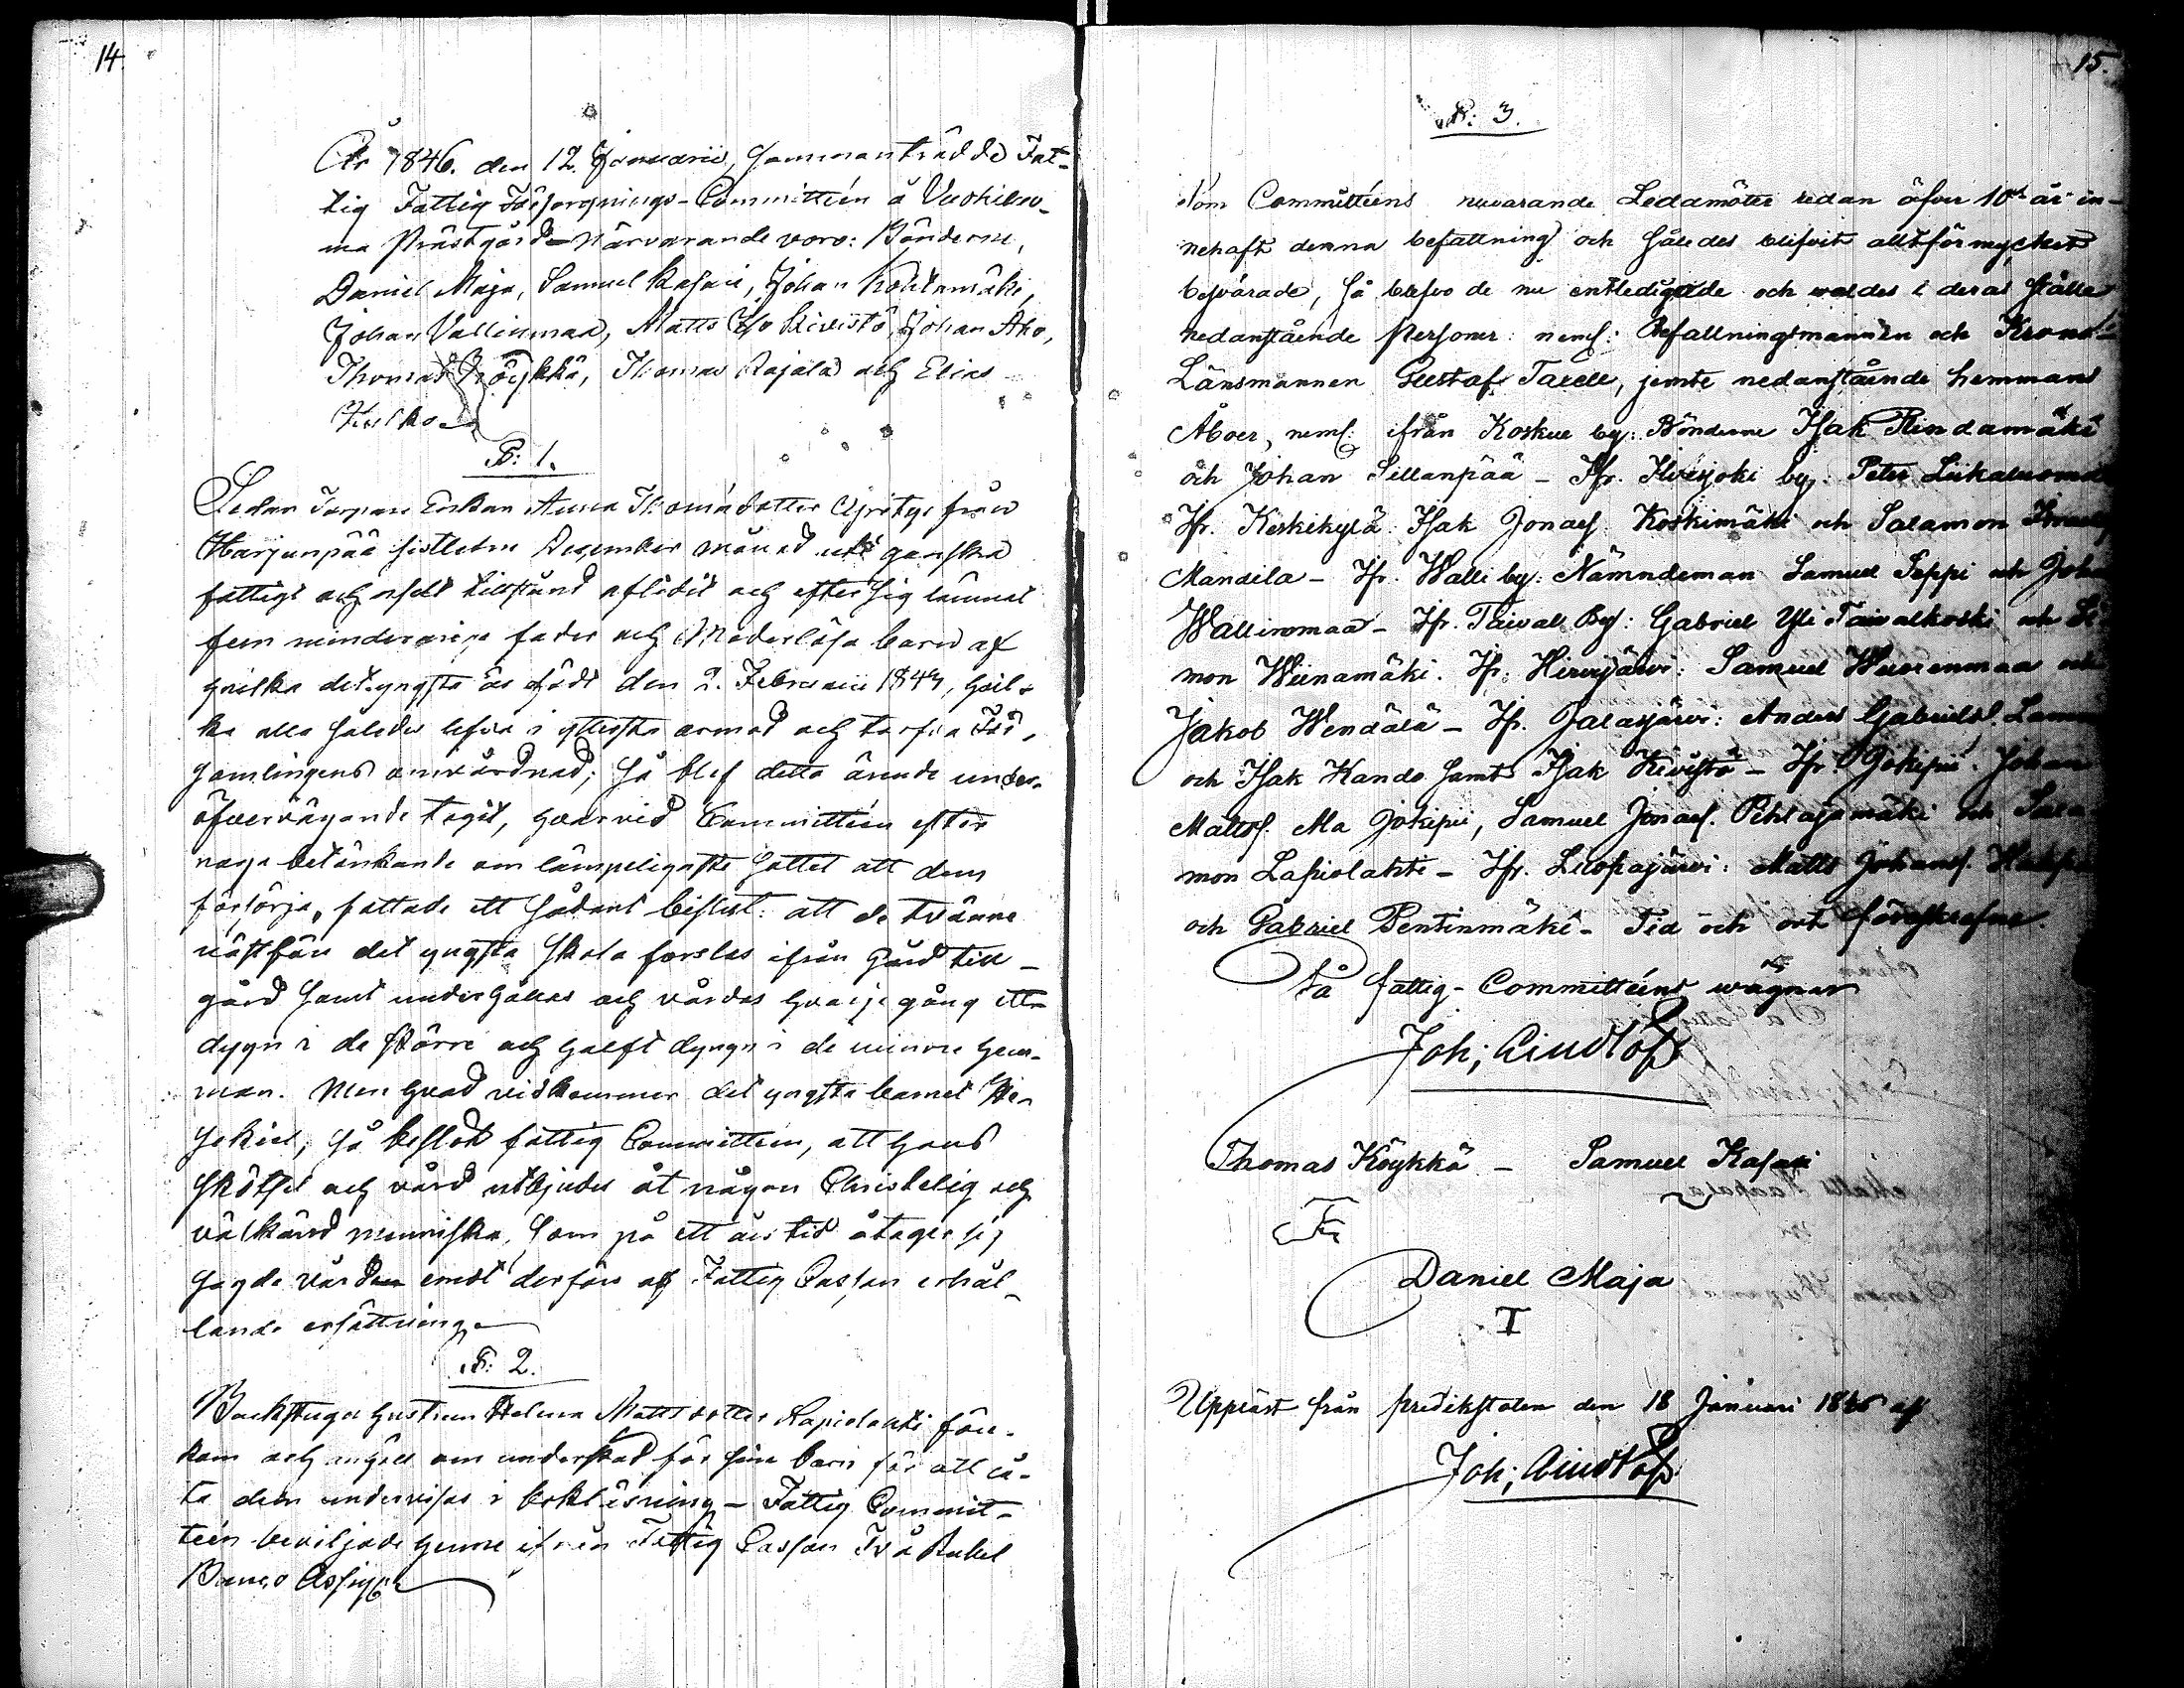 14.
År 1846. den 12 Januarii, sammanträdde Fat-
tig Fattig Försorgnings-Committéen å Vuokiluo-
ma Prästgård - Närvarande voro: Bönderne,
Daniel Maja, Samuel Kasari, Johan Kohtamäki,
Johan Vallinmaa, Matts Yli Kivistö, Johan Aho,
Thomas Köykkä, Thomas Rajala och Elias
§: 1.
Sedan Torpare Enkan Anna Thomædotter från
Harjunpää sistledne December månad uti ganska
fattigt och uselt tillstånd aflidit och efter sig lämnat
fem minderåriga fader och Moderlösa barn af
hvilka det yngsta är födt den 2. Februarii 1844, hvil-
ka alla således lefva i yttersta armod och tarfva För-
samlingens omvårdnad; så blef detta ärende under
öfvervägande tagit, hvarvid Committéen efter
noga betänkande om lämpeligaste sättet att dem
försörja, fattade ett sådant beslut: att de tvänne
näst för det yngsta skola forslas ifrån gård till
gård samt underhållas och vårdas hvarje gång ett
dygn i de större och halft dygn i de minre hem-
man. Men hvad vidkommer det yngsta barnet He-
sekiel, så beslöt fattig Committéen, att hans
skötsel och vård utbjudes åt någon Christelig och
välkänd menniska, som på ett års tid åtager sig
sagde vården emot derföre af Fattig Cassan erhål-
lande ersättning.
§: 2.
Backstugu hustrun Helena Mattsdotter Lapiolahti före-
kom och anhöll om understöd för sine barn för att lå-
ta dem undervisas i bokläsning - Fattig Commit-
téen beviljade henne ifrån Fattig Cassan Två Rubel
Banco Assign.
15.
§: 3.
Som Committéens nuvarande Ledamöter redan öfver 10 år in-
nehaft denna befattning och således blifvit alltför mycket
besvärade, så blefvo de nu entledigade och valdes i deras ställe
nedanstående Personer: neml: Befallningsmannen och Krono
Länsmannen Gustaf Taxell, jemte nedanstående hemmans
Åboer, neml: ifrån Koskue by: Bönderne Isak Rindamäki
och Johan Sillanpää - Ifr. Ilvesjoki by: Peter Liikaluoma
Ifr. Keskikylä: Isak Jonæs. Koskimäki och Salamon
Mandila - Ifr. Walli by: Nämndeman Samuel Seppi och Joh
Wallinmaa - Ifr. Taival By: Gabriel Yli Taivalkoski och Si
mon Weinamäki. Ifr. Hirvijärvi: Samuel Wuorenmaa och
Jakob Wendälä - Ifr. Jalasjärvi: Anders Gabriels.
och Isak Hando samt Isak Kivistö - Ifr. Jokipii: Johan
Mattss. Ala Jokipii, Samuel Jonæs. Pihlajamäki och Sala
mon Lapiolahti - Ifr. Luopajärvi: Matts Johanss.
och Gabriel Pentinmäki - Tid och ort förrskrefne.
På fattig-Committéens wägnar
Joh; Lindtöf
Thomas Köykkä - Samuel Kasari
Daniel Maja
Uppläst från predikstolen den 18 Januari 1846 af
Joh; Lindtöf